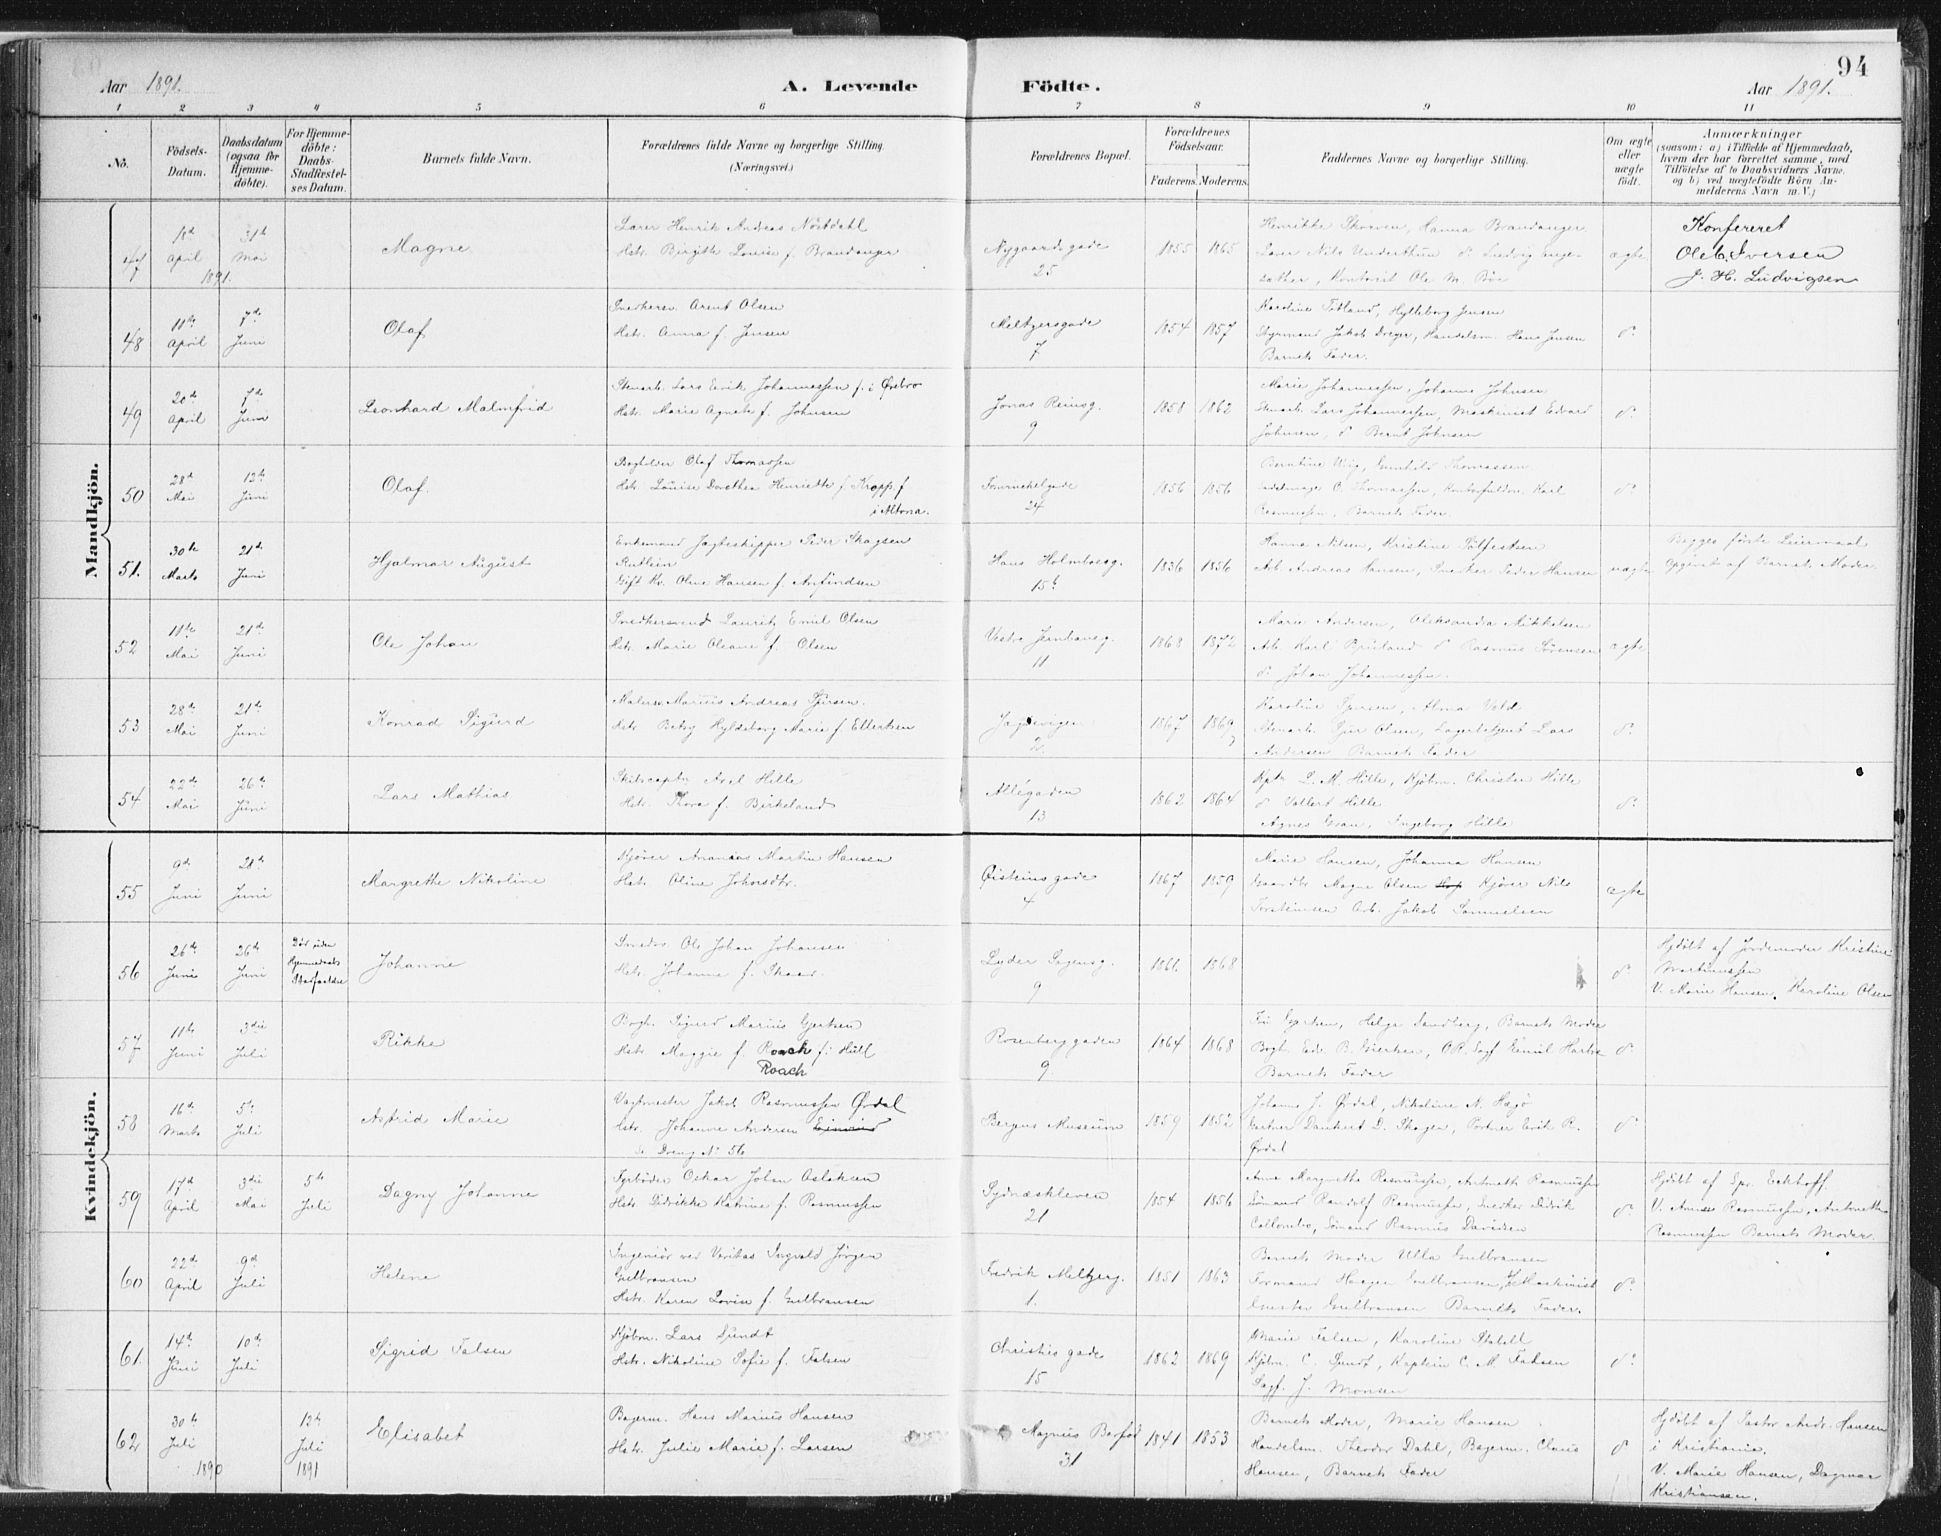 94
Aar 1891. A. Levende Födte. Aar 1891.
1 2 3 4 5 6 7 8 9 10 11
No.
Födsels-Datum.
Daabsdatum (ogsaa for Hjemme-döbte).
For Hjemme-döbte: Daabs-Stadfæstel-ses Datum.
Barnets fulde Navn.
Forældrenes fulde Navne og borgerlige Stilling. (Næringsvei.)
Forældrenes Bopæl.
Forældrenes Födselsaar.
Faderens. Moderens.
Faddernes Navne og borgerlige Stilling.
Om ægte eller uægte födt.
Anmærkninger
(saasom: a) i Tilfælde af Hjemmedaab,
hvem der har forrettet samme, med
Tilföielse af to Daabsvidners Navne.
og b) ved uægtefödte Börn An-
melderens Navn m.V.)
Mandkjön.
47 18d April 1891. 31te Mai Magne
Lærer Henrik Andreas Nöstdahl
Hstr. Birgitte Louise f. Brandanger
Nygaardsgade 25 1855 1865
Henrikke Skorven, Hanna Brandanger
Lærer Nils Underthun
Kontorist Ole M. Böe
ægte
Konfereret
Ole C. Iversen
J. H. Ludvigsen
48 11te April 7de Juni Olaf
Snedkersv. Arent Olsen
Hstr. Anna f. Jensen
Meltzersgade 7 1854 1857
Karoline Titland, Hylleborg Jensen
Styrmand Jakob Dreyer, Handelsm. Hans Jensen
Barnets Fader.
do
49 20de April 7de Juni Leonhard Malmfrid
Stenarb. Lars Eerik Johannessen f. i Örebro
Hstr. Marie Agnete f. Johnsen
Jonas Reinsg. 9 1858 1862
Marie Johannessen, Johanne Johnsen
Stenarb. Lars Johannessen, Maskinist Edvard
Johnsen, do Bernt Johnsen
do
50 28de Mai 12te Juni Olaf.
Bogholder Olaf Thomassen
Hstr. Louise Dorothea Henriette f. Kopp f
i Altona.
24 1856 1856
Berntine Wiig, Gunhild Thomassen
Sadelmager O. Thomassen, Kontorfuldm. Karl
Rasmussen, Barnets Fader.
do
51. 30te Marts 21de Juni Hjalmar August
Enkemand Jagteskipper Peder Skagsen
Rutlein
Gift Kv. Oline Hansen f. Anfindsen
Hans Holmboesg. 15b 1836 1856
Hanna Nilsen, Kristine Sölfestsen
Arb. Andreas Hansen, Snedker Peder Hansen
uægte
Begges förste Leiermaal
Opgivet af Barnets Moder.
52 11te Mai 21de Juni Ole Johan
Snedkersvend Laurits Emil Olsen
Hstr. Marie Oleane f. Olsen
Vestre Jernbaneg. 11 1868 1872
Marie Andersen, Aleksandra Mikkelsen
Arb. Karl Bruland do Rasmus Sörensen
do Johan Johannessen.
ægte
53 28de Mai 21de Juni Konrad Sigurd
Malersv. Marius Andreas Sjursen.
Hstr. Betsy Hyldeborg Marie f. Ellertsen
Jægtevigen 2. 1867 1869
Karoline Sjursen, Alma Vold
Stenarb. Sjur Olsen, Lagerbetjent Lars
Andersen Barnets Fader
do
54 22de Mai 26de Juni Lars Mathias
Skibscaptn Axel Hille
Hstr. Thora f. Birkeland
Allégaden 13 1862 1864
Kptn L. M. Hille, Kjöbm. Christen Hille
do Vollert Hille
Agnes Gran, Ingeborg Hille
do
Kvindekjön.
55 9de Juni 28de Juni Margrethe Nikoline
Kjörer Ananias Martin Hansen
Hstr. Oline Johnsdtr.
Öisteins gade 4 1867 1859
Marie Hansen, Johanna Hansen
Gaardbr Magne Olsen Kjörer Nils
Torsteinsen Arb. Jakob Samuelsen
ægte
56 26de Juni 26de Juni Död uden Hjemmedaabs Stadfæstelse Johanne
Smedsv. Ole Johan Johansen
Hstr. Johanne f. Skaar.
Lyder Sagensg. 9 1861. 1868
do
Hjdöbt af Jordemoder Kristine
Martinussen
V. Marie Hansen, Karoline Olsen
57 11te Juni 3die Juli Rikke
Bogh. Sigurd Marius Gjertsen
Hstr. Maggie f. Roach f. i Hull
Roach
Rosenberggaden 9. 1864 1868
Fru Gjertsen, Helga Sundberg, Barnets Moder
Bogh. Ed. B. Giertsen, OR. Sagf. Emil
Barnets Fader
do
58 16de Marts 5te Juli Astrid Marie
Vagtmester Jakob Rasmussen Ördal
Hstr. Johanne Andersen
Se Dreng No 56
Bergens Museum 1859 1852
Johanne J. Ördal, Nikoline N.
Gartner Dankert D. Skagen, Portner Erik R.
Ördal
do
59 17de April 3die Mai 5te Juli Dagny Johanne
Fyrböder Oskar Johan Aslaksen
Hstr. Didrikke Katrine f. Rasmussen
Sydnæskleven 21 1854 1856
Ane Margrethe Rasmussen, Antonette Rasmussen
Sömand Randolf Rasmussen, Snedker Didrik
Collombo, Sömand Rasmus Davidsen
do
Hjdöbt af Spr. Eckhoff.
V. Anne Rasmussen, Antonette
Rasmussen Barnets Moder.
60 22de April 9de Juli Helene
Ingeniör ved Veritas Ingvald Jörgen
Gulbransen
Hstr. Karen Lovise f. Gulbransen
Fredrik Meltzersg. 1. 1851 1863
Barnets Moder Ulla Gulbransen
Formand Haagen Gulbransen, Maskinist
Gulbransen Barnets Fader.
do
61. 14de Juni 10de Juli Sigrid Falsen
Kjöbm. Lars Sundt
Hstr. Nikoline Sofie f. Falsen
Christies gade 15 1862 1869
Marie Falsen, Karoline Stabell
Kjöbm. C. Sundt, Kaptein C. M. Falsen
Sagf. J. Monsen
do
62 30te Juli 1890 12te Juli 1891 Elisabet
Bagerm. Hans Marius Hansen
Hstr. Julie Marie f. Larsen
Magnus Barfod 31 1841 1853
Barnets Moder, Marie Hansen
Handelsm. Theodor Dahl, Bagerm. Claus
Hansen, Barnets Fader
do
Hjdöbt af Pastor Andr. Hansen
i Kristiania.
V. Marie Hansen, Dagmar
Kristiansen.